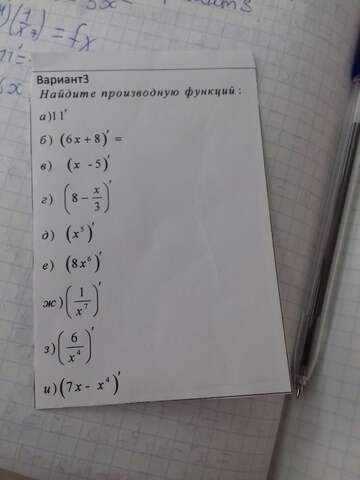 Вариант3
Найдите производную функций:
а)11′
б) (6x+8)′ =
в) (x -5)′
г) (8 − x/3)′
д) (x⁵)′
е) (8x⁶)′
ж)(1/x⁷)′
з)(6/x⁴)′
и)(7x- x⁴)′